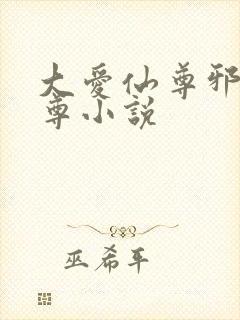 大愛仙尊邪
尊小說
巫希平